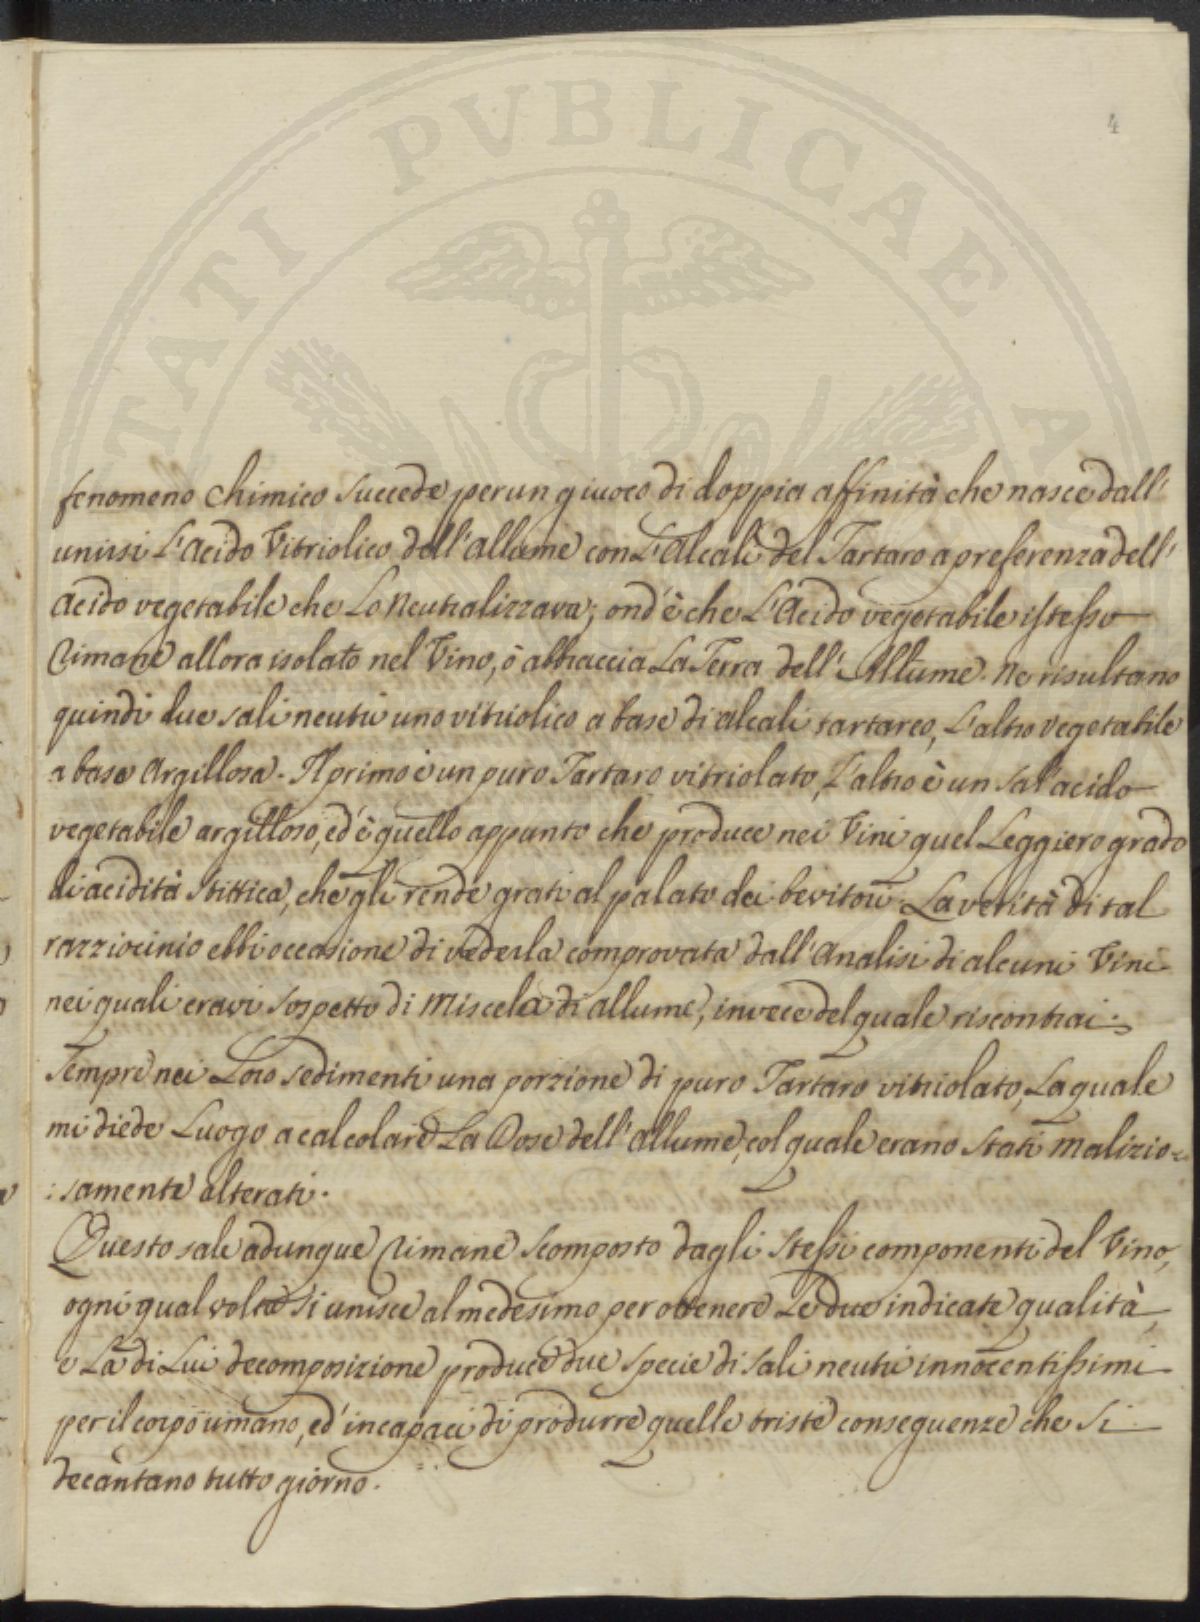 PUBLICAE
TATI
A
4
fenomeno chimico succede per un giuoco di doppia affinità che nasce dall'
unirsi L'Acido Vitriolico dell'allume con L'Alcali del Tartaro a preferenza dell'
Acido vegetabile che Lo Neutralizzava; ond'è che L'Acido vegetabile istesso
Rimane allora isolato nel Vino, ò abbraccia La Terra dell'Allume. Ne risultano
quindi due sali neutri uno vitriolico a base di alcali tartareo, L'altro vegetabile
a base Argillosa. Il primo è un puro Tartaro vitriolato, L'altro è un sal acido
vegetabile argilloso, ed'è quello appunto che produce nei Vini quel Leggiero grado
di acidità Stittica, che gli rende grati al palato dei bevitori. La verità di tal
razziocinio ebbi occasione di vederla comprovata dall'Analisi di alcuni Vini
nei quali eravi sospetto di Miscela di allume, invece del quale riscontrai
Sempre nei Loro sedimenti una porzione di puro Tartaro vitriolato, La quale
mi diede Luogo a calcolare La Dose dell'allume, col quale erano Stati Malizio=
:samente alterati.
Questo sale adunque Rimane Scomposto dagli Stessi componenti del Vino,
ogni qual volta Si unisce al medesimo per ottenere Le due indicate qualità,
e La di Lui decomposizione produce due specie di Sali neutri innocentissimi
per il corpo umano, ed'incapaci di produrre quelle triste conseguenze che Si
decantano tutto giorno.